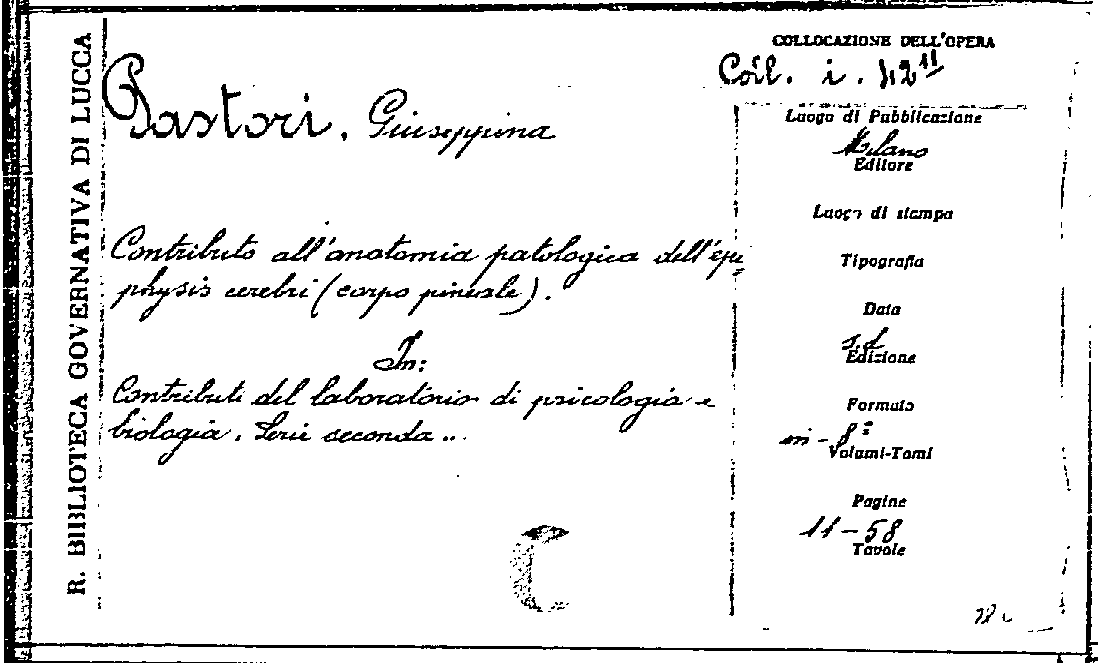 R. BIBLIOTECA GOVERNATIVA DI LUCCA
Pastori, Giuseppina
Contributo all'anatomia patologica dell'epi=
physis cerebri (corpo pineale).
In:
Contributi del laboratorio di psicologia e
biologia. Serie seconda...
COLLOCAZIONE DELL'OPERA
Coll. i. 42 11
Luogo di Pubblicazione
Milano
Editore
Luogo di stampa
Tipografia
Data
s.d.
Edizione
Formato
in-8°
Volumi-Tomi
Pagine
11-58
Tavole